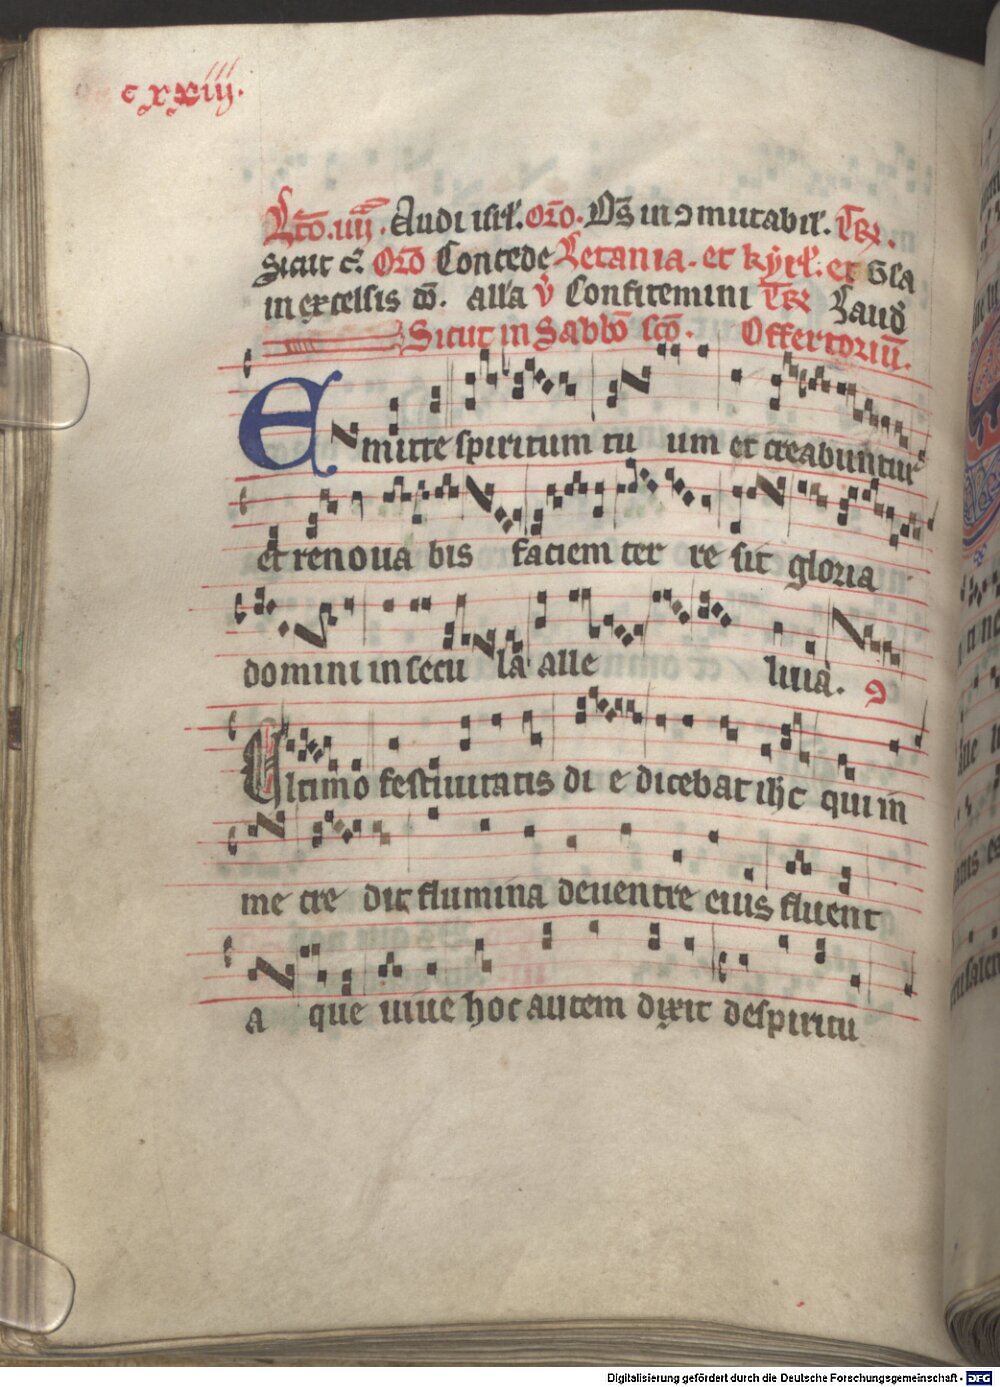 cxxiij.
Lcō.iiij. Audi isrł. orō. Ds̄ in ɔmutabił. Tr̄.
Sicut c̄. Orō Concede Letania. et kyrł: et Gła
in excelsis dō. alla v̄ Confitemini Tr̄ Laud
Sicut in Sabbō scō. Offertoriū.
Emitte spiritum tu um et creabuntur
et renoua bis faciem ter re sit gloria
domini in secu la alle luia. ꝯ
Ultimo festiuitatis di e dicebat ihc qui in
me cre dit flumina deuentre eius fluent
a que uiue hoc autem dixit despiritu
Digitalisierung gefördert durch die Deutsche Forschungsgemeinschaft - DFG